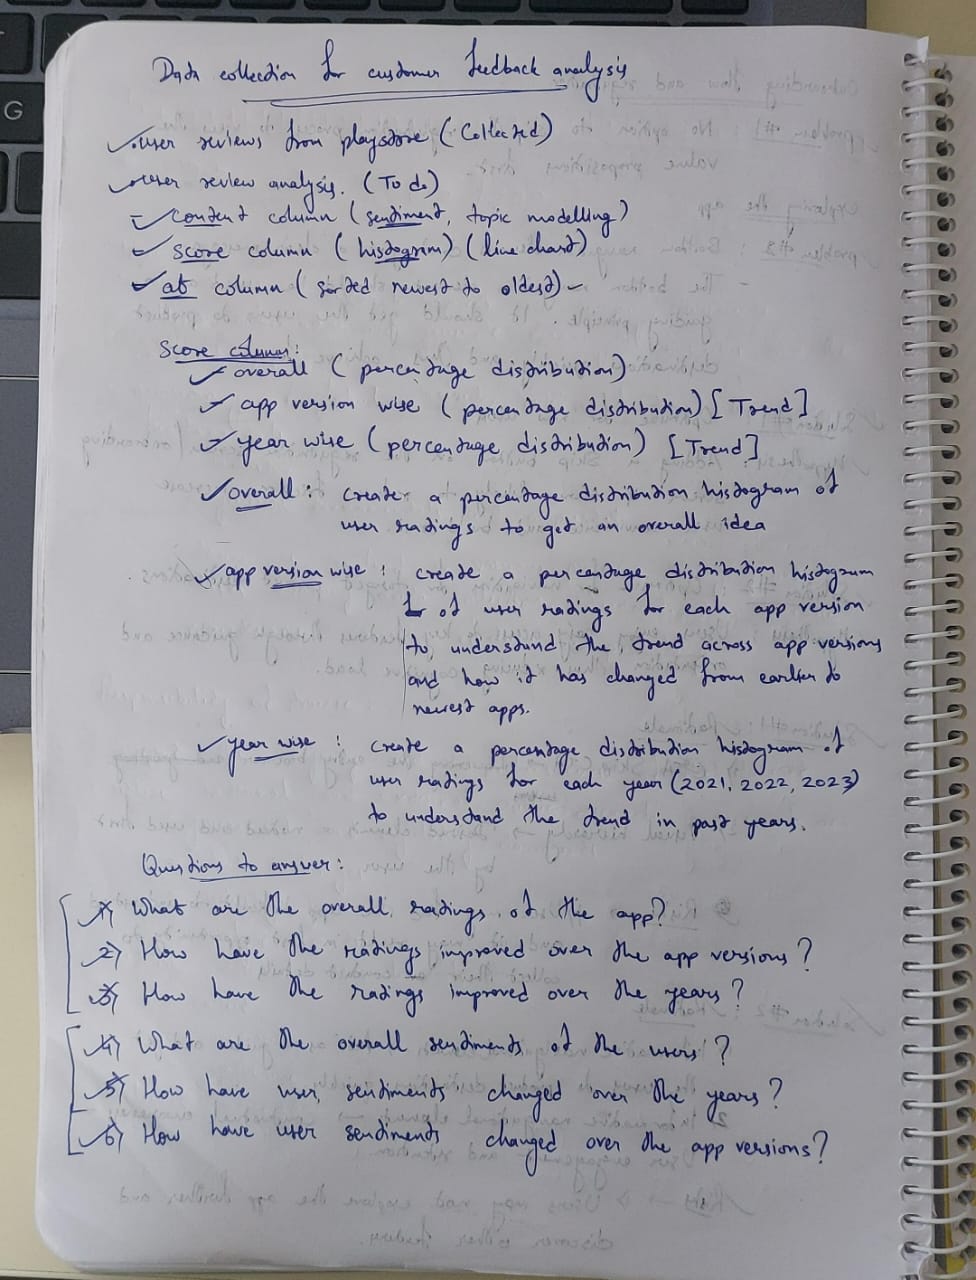 Data collection for customer feedback analysis
✓ user reviews from playstore (Collected)
✓ user review analysis. (To do)
✓ content column (sentiment, topic modelling)
✓ score column (histogram) (line chart)
✓ at column (sorted newest to oldest) –
Score column:
✓ overall (percentage distribution)
✓ app version wise (percentage distribution) [Trend]
✓ year wise (percentage distribution) [Trend]
✓ overall : create a percentage distribution histogram of
user ratings to get an overall idea
✓ app version wise : create a percentage distribution histogram
of user ratings for each app version
to understand the trend across app versions
and how it has changed from earlier to
newest apps.
✓ year wise : create a percentage distribution histogram of
user ratings for each year (2021, 2022, 2023)
to understand the trend in past years.
Questions to answer:
1) What are the overall ratings of the app?
2) How have the ratings improved over the app versions?
3) How have the ratings improved over the years?
4) What are the overall sentiments of the users?
5) How have user sentiments changed over the years?
6) How have user sentiments changed over the app versions?
G